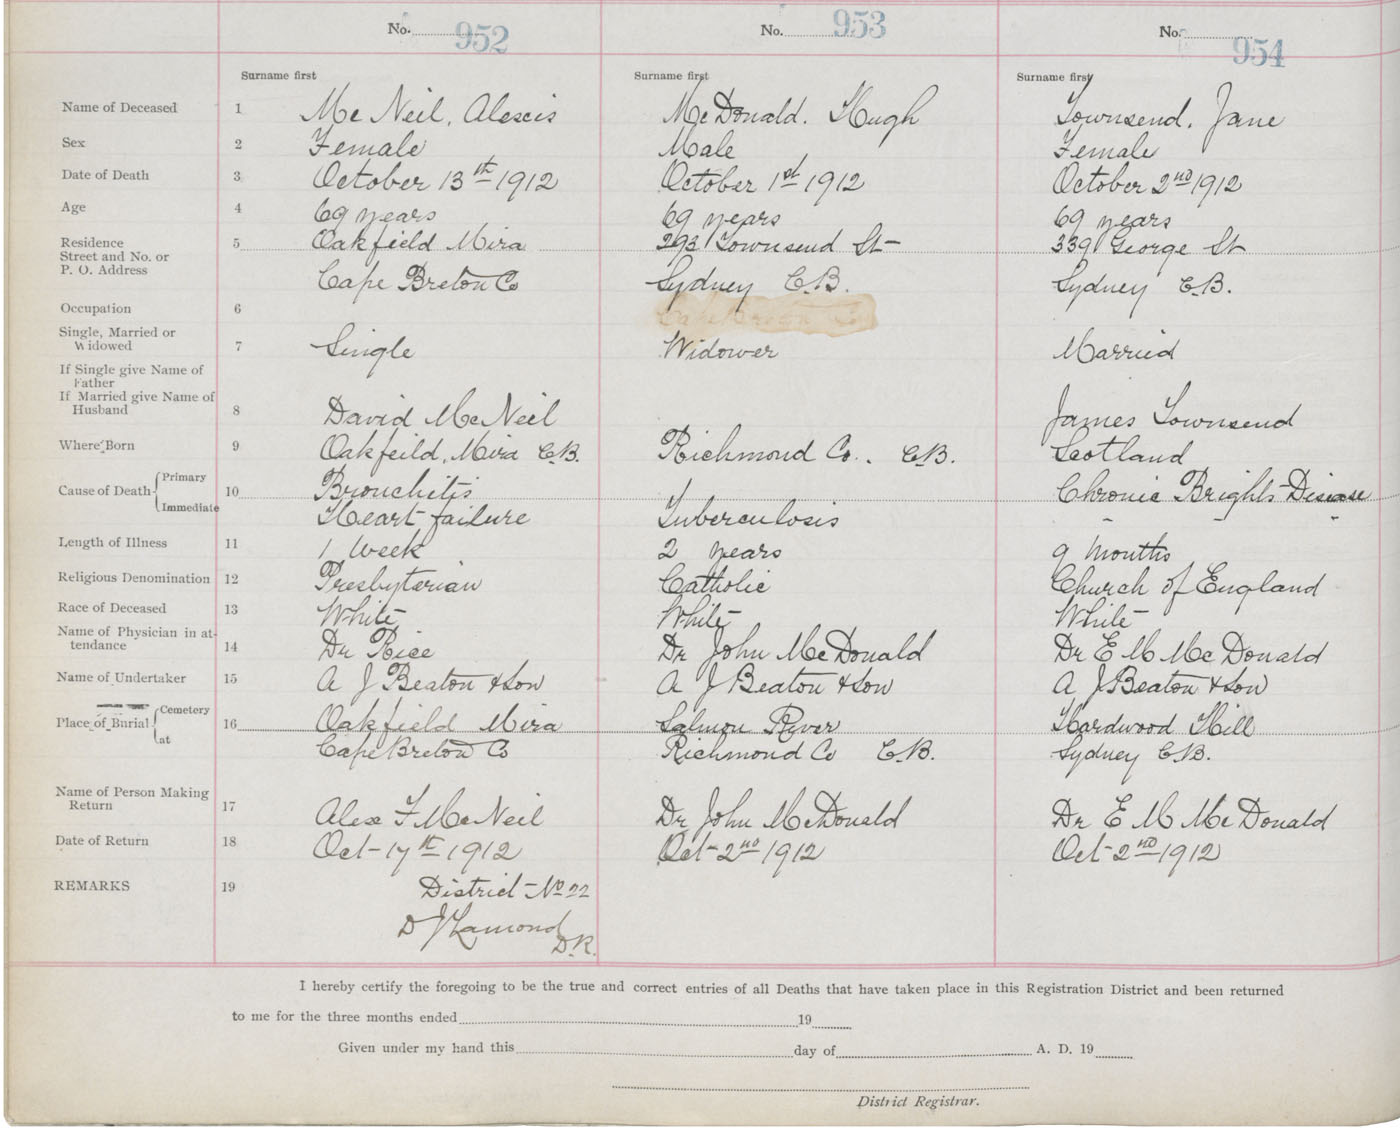 No. 952 No. 953 No. 954
Surname first Surname first Surname first
Name of Deceased 1 McNeil, Alexcis McDonald. Hugh Townsend, Jane
Sex 2 Female Male Female
Date of Death 3 October 13th 1912 October 1st 1912 October 2nd 1912
Age 4 69 years 69 years 69 years
Residence 5 Oakfield Mira 293 Townsend St 339 George St
Street and No. or
P. O. Address Cape Breton Co Sydney C.B. Sydney C.B.
Occupation 6 Cape Breton Co
Single, Married or
Widowed 7 Single Widower Married
If Single give Name of
Father
If Married give Name of
Husband 8 David McNeil James Townsend
Where Born 9 Oakfeild, Mira C.B. Richmond Co. C.B. Scotland
Cause of Death Primary 10 Bronchitis Chronic Brights Disease
Immediate Heart failure Tuberculosis
Length of Illness 11 1 Week 2 years 9 Months
Religious Denomination 12 Presbyterian Catholic Church of England
Race of Deceased 13 White White White
Name of Physician in at-
tendance 14 Dr Rice Dr John McDonald Dr E M McDonald
Name of Undertaker 15 A J Beaton & Son A J Beaton & Son A J Beaton & Son
Place of Burial Cemetery 16 Oakfield Mira Salmon River Hardwood Hill
at Cape Breton Co Richmond Co C.B. Sydney C.B.
Name of Person Making
Return 17 Alex F McNeil Dr John McDonald Dr E M McDonald
Date of Return 18 Oct 17th 1912 Oct 2nd 1912 Oct 2nd 1912
REMARKS 19 District No 22
D J Lamond
D.R.
I hereby certify the foregoing to be the true and correct entries of all Deaths that have taken place in this Registration District and been returned
to me for the three months ended 19
Given under my hand this day of A. D. 19
District Registrar.